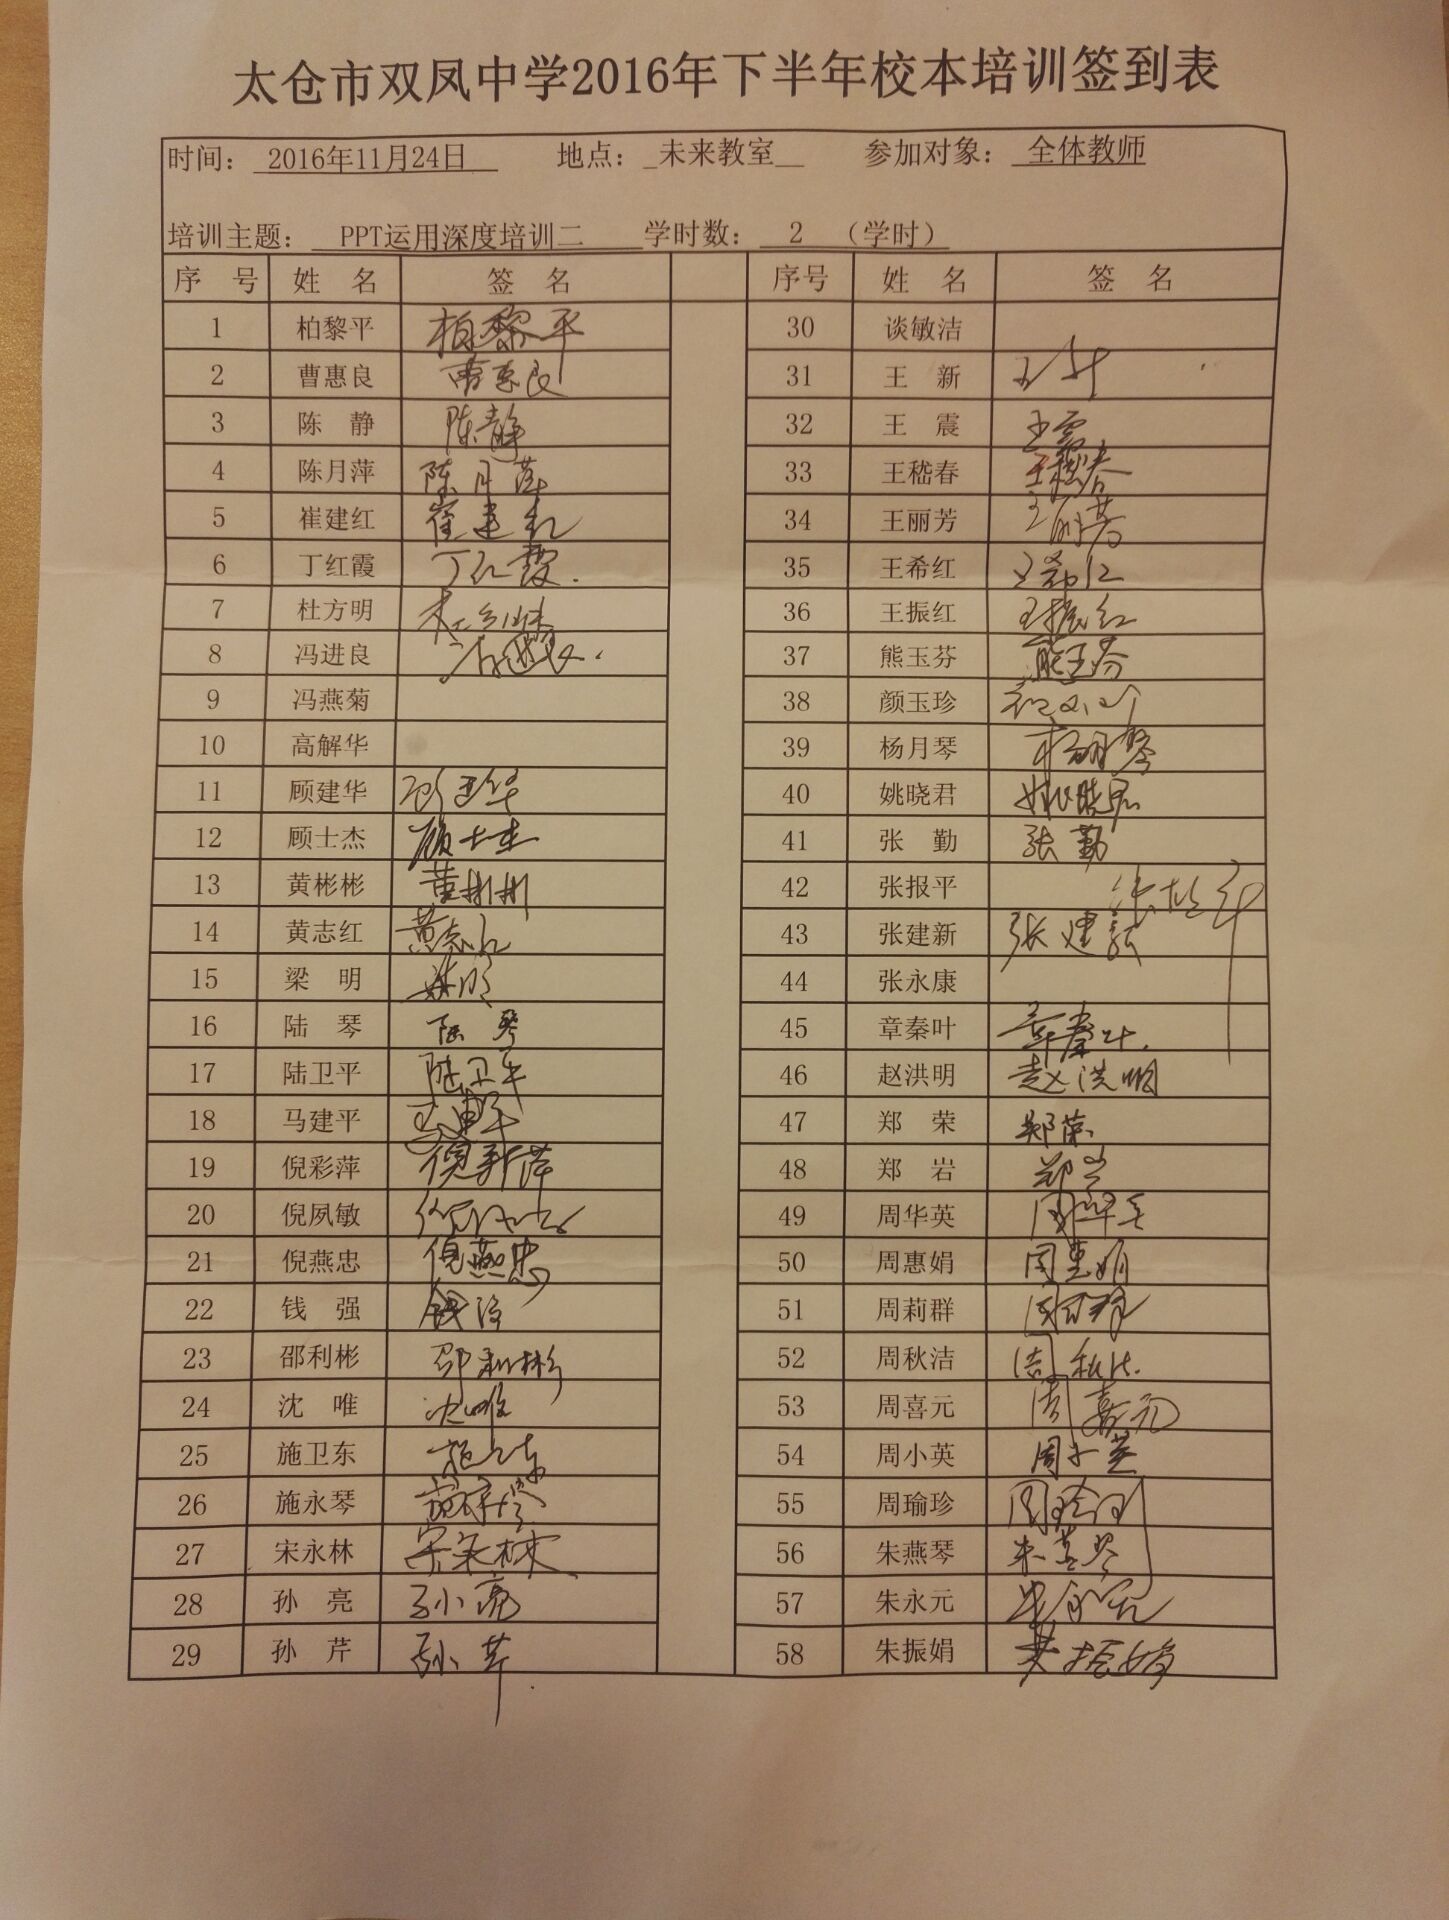 太仓市双凤中学2016年下半年校本培训签到表
时间： 2016年11月24日 地点：_未来教室__ 参加对象： 全体教师
培训主题： PPT运用深度培训二 学时数： 2 （学时）
序 号 姓 名 签 名 序号 姓 名 签 名
1 柏黎平 柏黎平 30 谈敏洁
2 曹惠良 曹惠良 31 王 新 王新
3 陈 静 陈静 32 王 震 王震
4 陈月萍 陈月萍 33 王嵇春 王嵇春
5 崔建红 崔建红 34 王丽芳 王丽芳
6 丁红霞 丁红霞. 35 王希红 王希红
7 杜方明 杜方明 36 王振红 王振红
8 冯进良 冯进良. 37 熊玉芬 熊玉芬
9 冯燕菊 38 颜玉珍 颜玉珍
10 高解华 39 杨月琴 杨月琴
11 顾建华 顾建华 40 姚晓君 姚晓君
12 顾士杰 顾士杰 41 张 勤 张勤
13 黄彬彬 黄彬彬 42 张报平 张报平
14 黄志红 黄志红 43 张建新 张建新
15 梁 明 梁明 44 张永康
16 陆 琴 陆琴 45 章秦叶 章秦叶.
17 陆卫平 陆卫平 46 赵洪明 赵洪明
18 马建平 马建平 47 郑 荣 郑荣
19 倪彩萍 倪彩萍 48 郑 岩 郑岩
20 倪夙敏 倪夙敏 49 周华英 周华英
21 倪燕忠 倪燕忠 50 周惠娟 周惠娟
22 钱 强 钱强 51 周莉群 周莉群
23 邵利彬 邵利彬 52 周秋洁 周秋洁.
24 沈 唯 沈唯 53 周喜元 周喜元
25 施卫东 施卫东 54 周小英 周小英
26 施永琴 施永琴 55 周瑜珍 周瑜珍
27 宋永林 宋永林 56 朱燕琴 朱燕琴
28 孙 亮 孙亮 57 朱永元 朱永元
29 孙 芹 孙芹 58 朱振娟 朱振娟